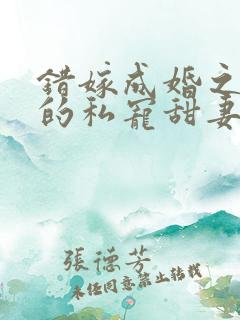 錯嫁成婚之
的私寵甜妻
張德芳
未經同意禁止轉載